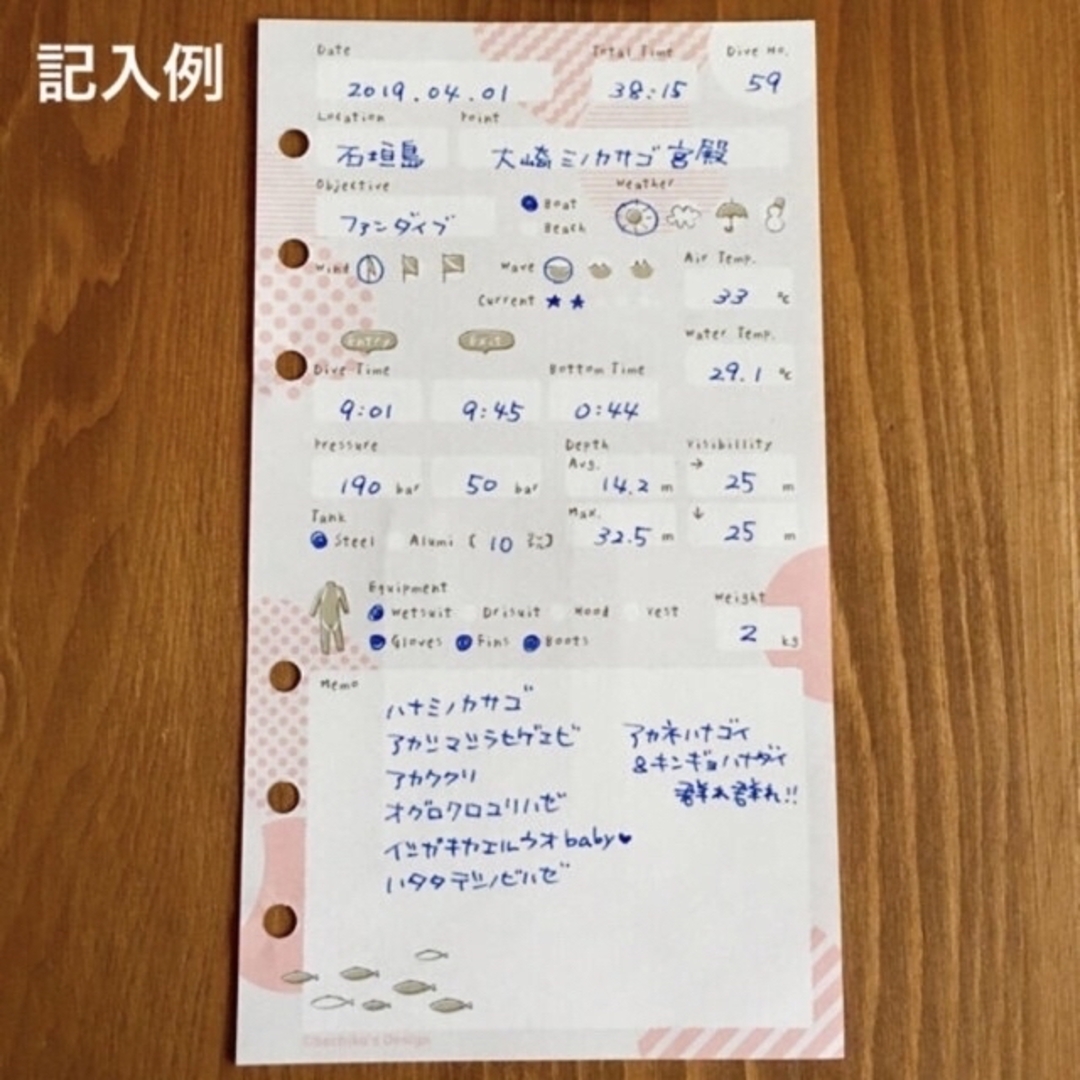 記入例
Date Total Time Dive No.
2019.04.01 38:15 59
Location Point
石垣島 大崎ミノカサゴ宮殿
Objective Weather
ファンダイブ Boat
Beach
Wind Wave Air Temp.
33 °C
Current ★★
Entry Exit Water Temp.
29.1 °C
Dive Time Bottom Time
9:01 9:45 0:44
Pressure Depth Visibillity
190 bar 50 bar Avg. 14.2 m → 25 m
Tank Max. 32.5 m ↓ 25 m
Steel Alumi [10 ㍑]
Equipment Weight
Wetsuit Drisuit Hood Vest
2 kg
Gloves Fins Boots
Memo
ハナミノカサゴ
アカシマシラヒゲエビ
アカククリ
オグロクロユリハゼ
イシガキカエルウオbaby♥
ハタタテシノビハゼ
アカネハナゴイ
&キンギョハナダイ
群れ群れ!!
©Sachika's Design